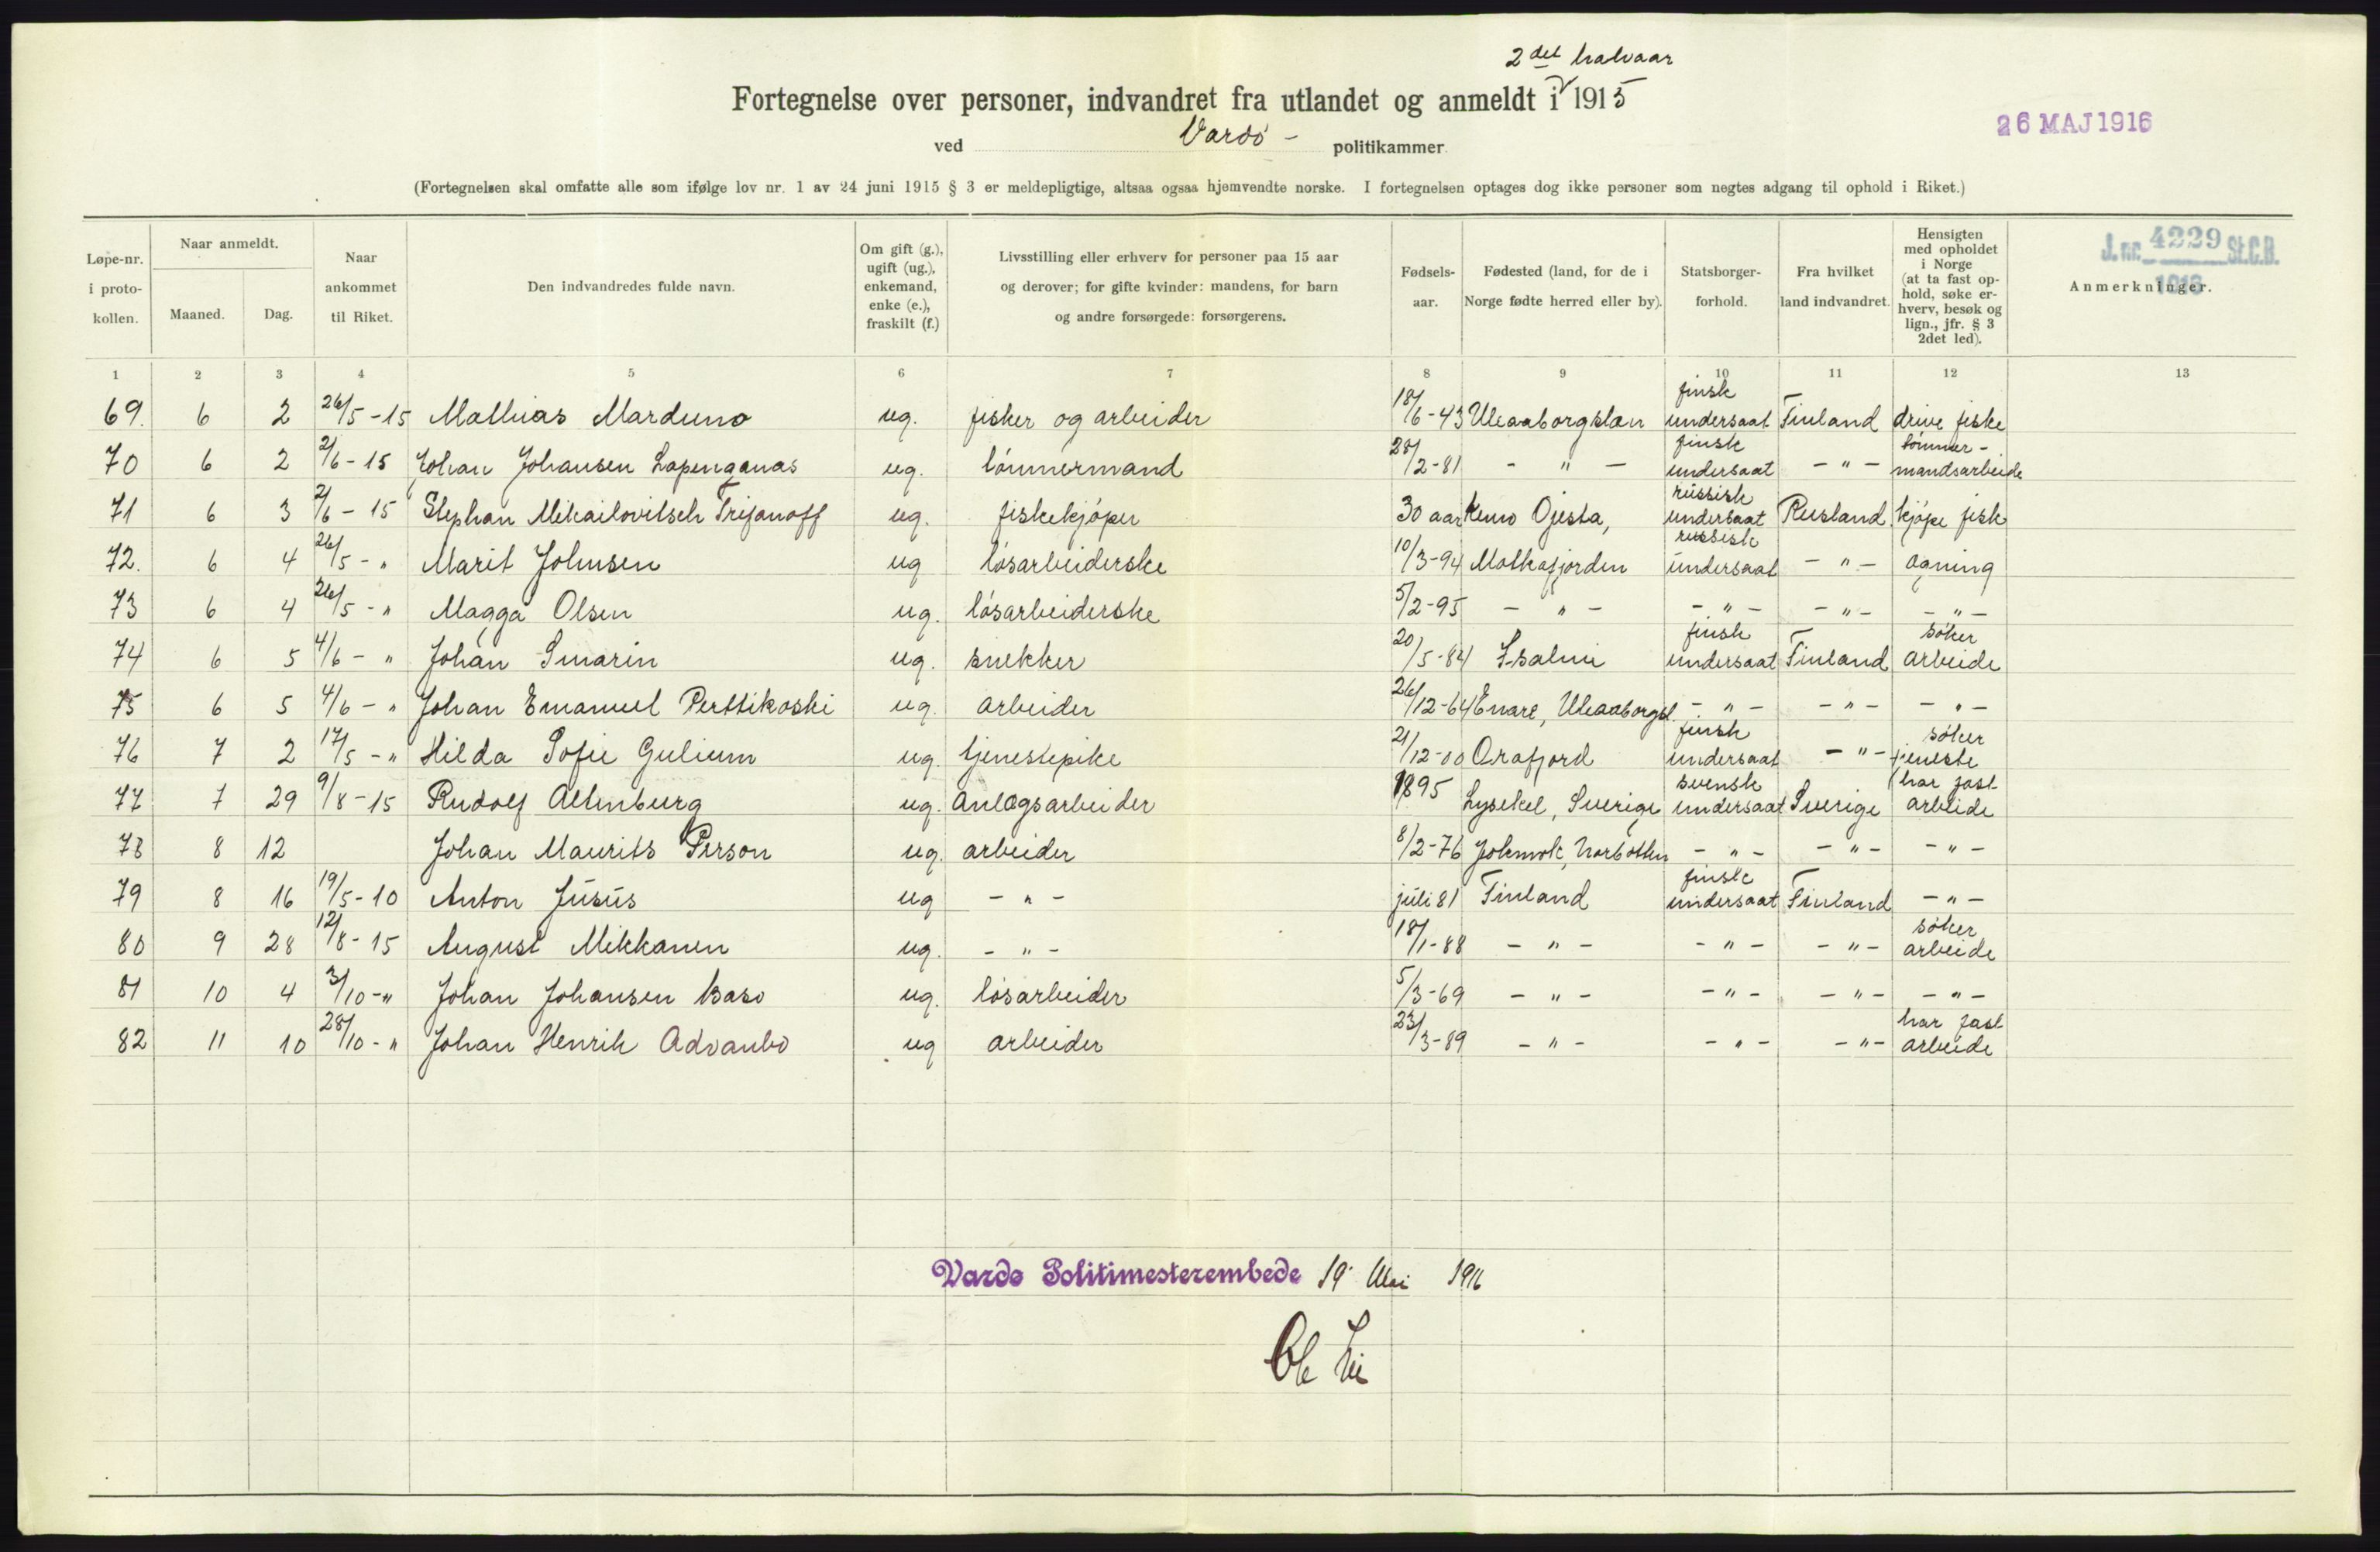 2det halvaar
Fortegnelse over personer, indvandret fra utlandet og anmeldt i 1915
26 MAJ 1916
ved Vardø - politikammer
(Fortegnelsen skal omfatte alle som ifølge lov nr. 1 av 24 juni 1915 § 3 er meldepligtige, altsaa ogsaa hjemvendte norske. I fortegnelsen optages dog ikke personer som negtes adgang til ophold i Riket.)
Løpe-nr. i proto-kollen.
Naar anmeldt.
Maaned.
Dag.
Naar ankommet til Riket.
Den indvandredes fulde navn.
Om gift (g.), ugift (ug.), enkemand, enke (e.), fraskilt (f.)
Livsstilling eller erhverv for personer paa 15 aar og derover; for gifte kvinder: mandens, for barn og andre forsørgede: forsørgerens.
Fødsels-aar.
Fødested (land, for de i Norge fødte herred eller by).
Statsborger-forhold.
Fra hvilket land indvandret.
Hensigten med opholdet i Norge (at ta fast op-hold, søke er-hverv, besøk og lign., jfr. § 3 2det led).
J. nr. 4229 St.C.B. 1916
Anmerkninger.
1 2 3 4 5 6 7 8 9 10 11 12 13
69. 6 2 26/5-15 Mathias Marduno ug. fisker og arbeider 18/6-43 Uleaaborgslæn finsk undersaat Finland drive fiske
70 6 2 2/6-15 Johan Johansen Lapinganas ug. tømmermand 28/2-81 - " - finsk undersaat - " - tømmer-mandsarbeide
71 6 3 2/6-15 Stephan Mikailovitsch Trifanoff ug. fiskekjøper 30 aar Kemo Ojesta, russisk undersaat Rusland kjøpe fisk
72. 6 4 26/5-" Marit Johnsen ug løsarbeiderske 10/3-94 Motkafjorden russisk undersaat - " - agning
73 6 4 26/5-" Magga Olsen ug. løsarbeiderske 5/2-95 - " - - " - - " - - " -
74 6 5 4/6-" Johan Smarin ug. snekker 20/5-84 Isalmi finsk undersaat Finland søker arbeide
75 6 5 4/6-" Johan Emanuel Perttikoski ug. arbeider 26/12-64 Enare, Uleaaborgsl. - " - - " - - " -
76 7 2 17/5-" Hilda Sofie Gulium ug. tjenestepike 21/12-00 Orafjord finsk undersaat - " - søker tjeneste
77 7 29 9/8-15 Rudolf Altenburg ug. Anlægsarbeider 1895 Lysekel, Sverige svensk undersaat Sverige har fast arbeide
78 8 12 Johan Maurits Person ug. arbeider 8/2-76 Jokmok, Norbotten - " - - " - - " -
79 8 16 19/5-10 Anton Jusus ug - " - juli 81 Finland finsk undersaat Finland - " -
80 9 28 12/8-15 August Mikkanen ug. - " - 18/1-88 - " - - " - - " - søker arbeide
81 10 4 3/10-" Johan Johansen Kaso ug. løsarbeider 5/3-69 - " - - " - - " - - " -
82 11 10 28/10-" Johan Henrik Advanbo ug arbeider 23/3-89 - " - - " - - " - har fast arbeide
Vardø Politimesterembede 19 Mai 1916